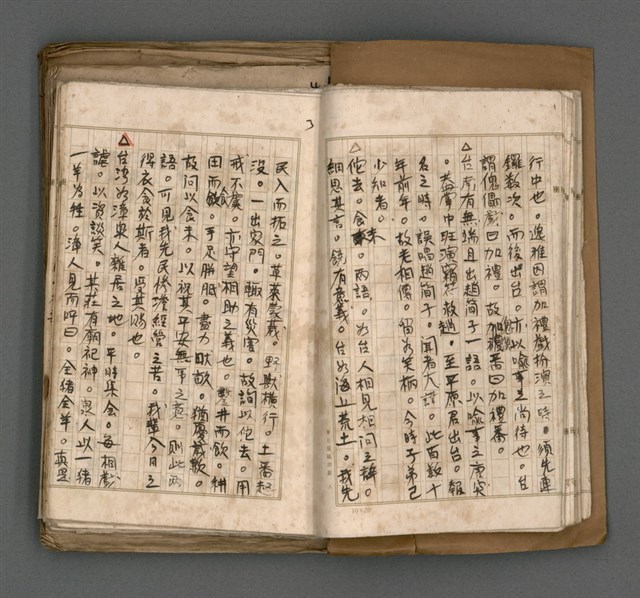 行中也。連雅因謂加禮戲扮演之時。須先連
鑼數次。而後出台。所以喻事之尚待也。台
謂傀儡戲曰加禮。故加禮番曰加禮番。
△台南有無端且出趙簡子一語。以喻事之唐突
。蓋掌中班演竊符救趙。至平原君出台。報
名之時。誤唱趙簡子。聞者大譁。此百數十
年前年。故老相傳。留為笑柄。今時子弟已
少知者。
△他去。食未。兩語。為台人相見相問之辭。
細思其言。饒有意義。台為海上荒土。我先
3
民入而拓之。草萊叢莪。野獸橫行。土番起
沒。一出家門。輒有災害。故詢以他去。用
戒不虞。亦守望相助之義也。鑿井而飲。耕
田而食。手足胼胝。盡力畎畝。猶憂歲歉。
故問以食未。以祝其平安無事之意。則此兩
語。可見我先民締造經營之苦。我輩今日之
得衣食於斯者。受其賜也。
△台灣為漳泉人雜居之地。平時集會。每相戲
謔。以資談笑。某莊有廟祀神。泉人以一豬
一羊為牲。漳人見而呼曰。全豬全羊。真是